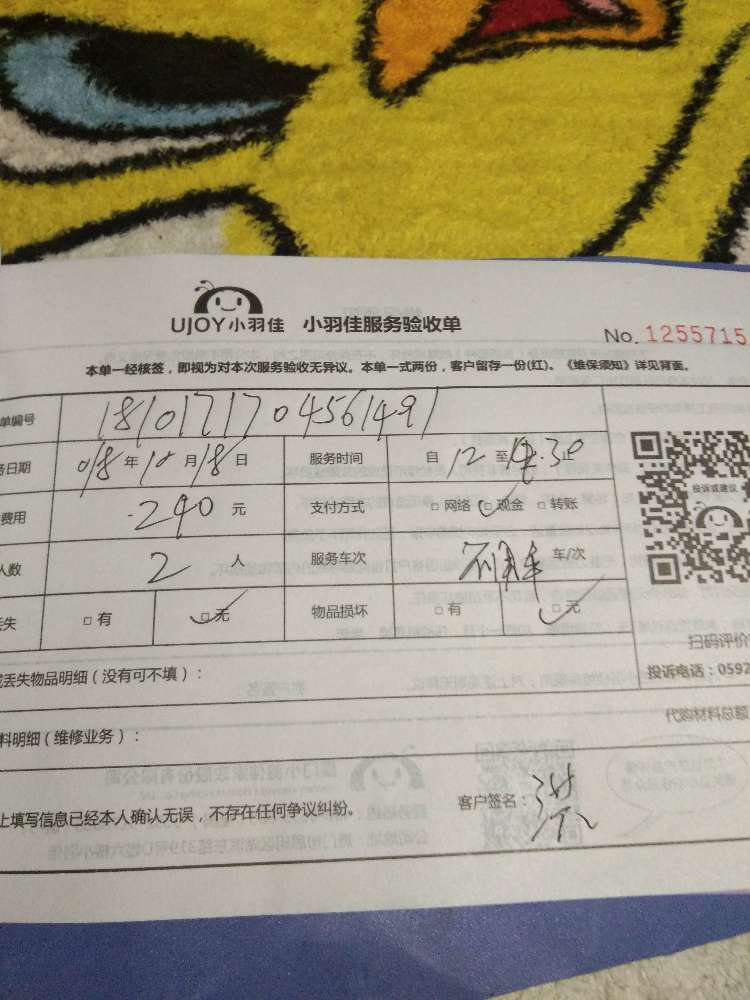 UJOY小羽佳 小羽佳服务验收单
No. 1255715
本单一经核签，即视为对本次服务验收无异议。本单一式两份，客户留存一份(红)。《维保须知》详见背面。
单编号 18101717045661491
务日期 018年10月18日 服务时间 自12至14:30止
费用 240元 支付方式 □网络 □现金 □转账
人数 2人 服务车次 车/次
丢失 □有 □无 物品损坏 □有 □无
投诉或建议
扫码评价
投诉电话：0592
或丢失物品明细（没有可不填）：
代购材料总额
料明细（维修业务）：
上填写信息已经本人确认无误，不存在任何争议纠纷。 客户签名：